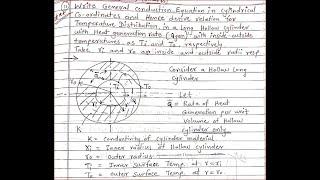 Write General Conduction Equation in cylindrical
Co-ordinates and Hence derive relation for
Temperature Distribution in a Long Hollow cylinder
with Heat generating rate (qgen) with inside outside
temperatures as Ti and To respectively
Take ri and ro as inside and outside radii resp
Consider a Hollow Long
Cylinder
Let
q̇g = Rate of Heat
Generation per unit
Volume of Hollow
Cylinder only
K = conductivity of cylinder material
ri = Inner radius of Hollow cylinder
ro = outer radius
Ti = Inner surface Temp. at r=ri
To = outer surface Temp. at r=ro